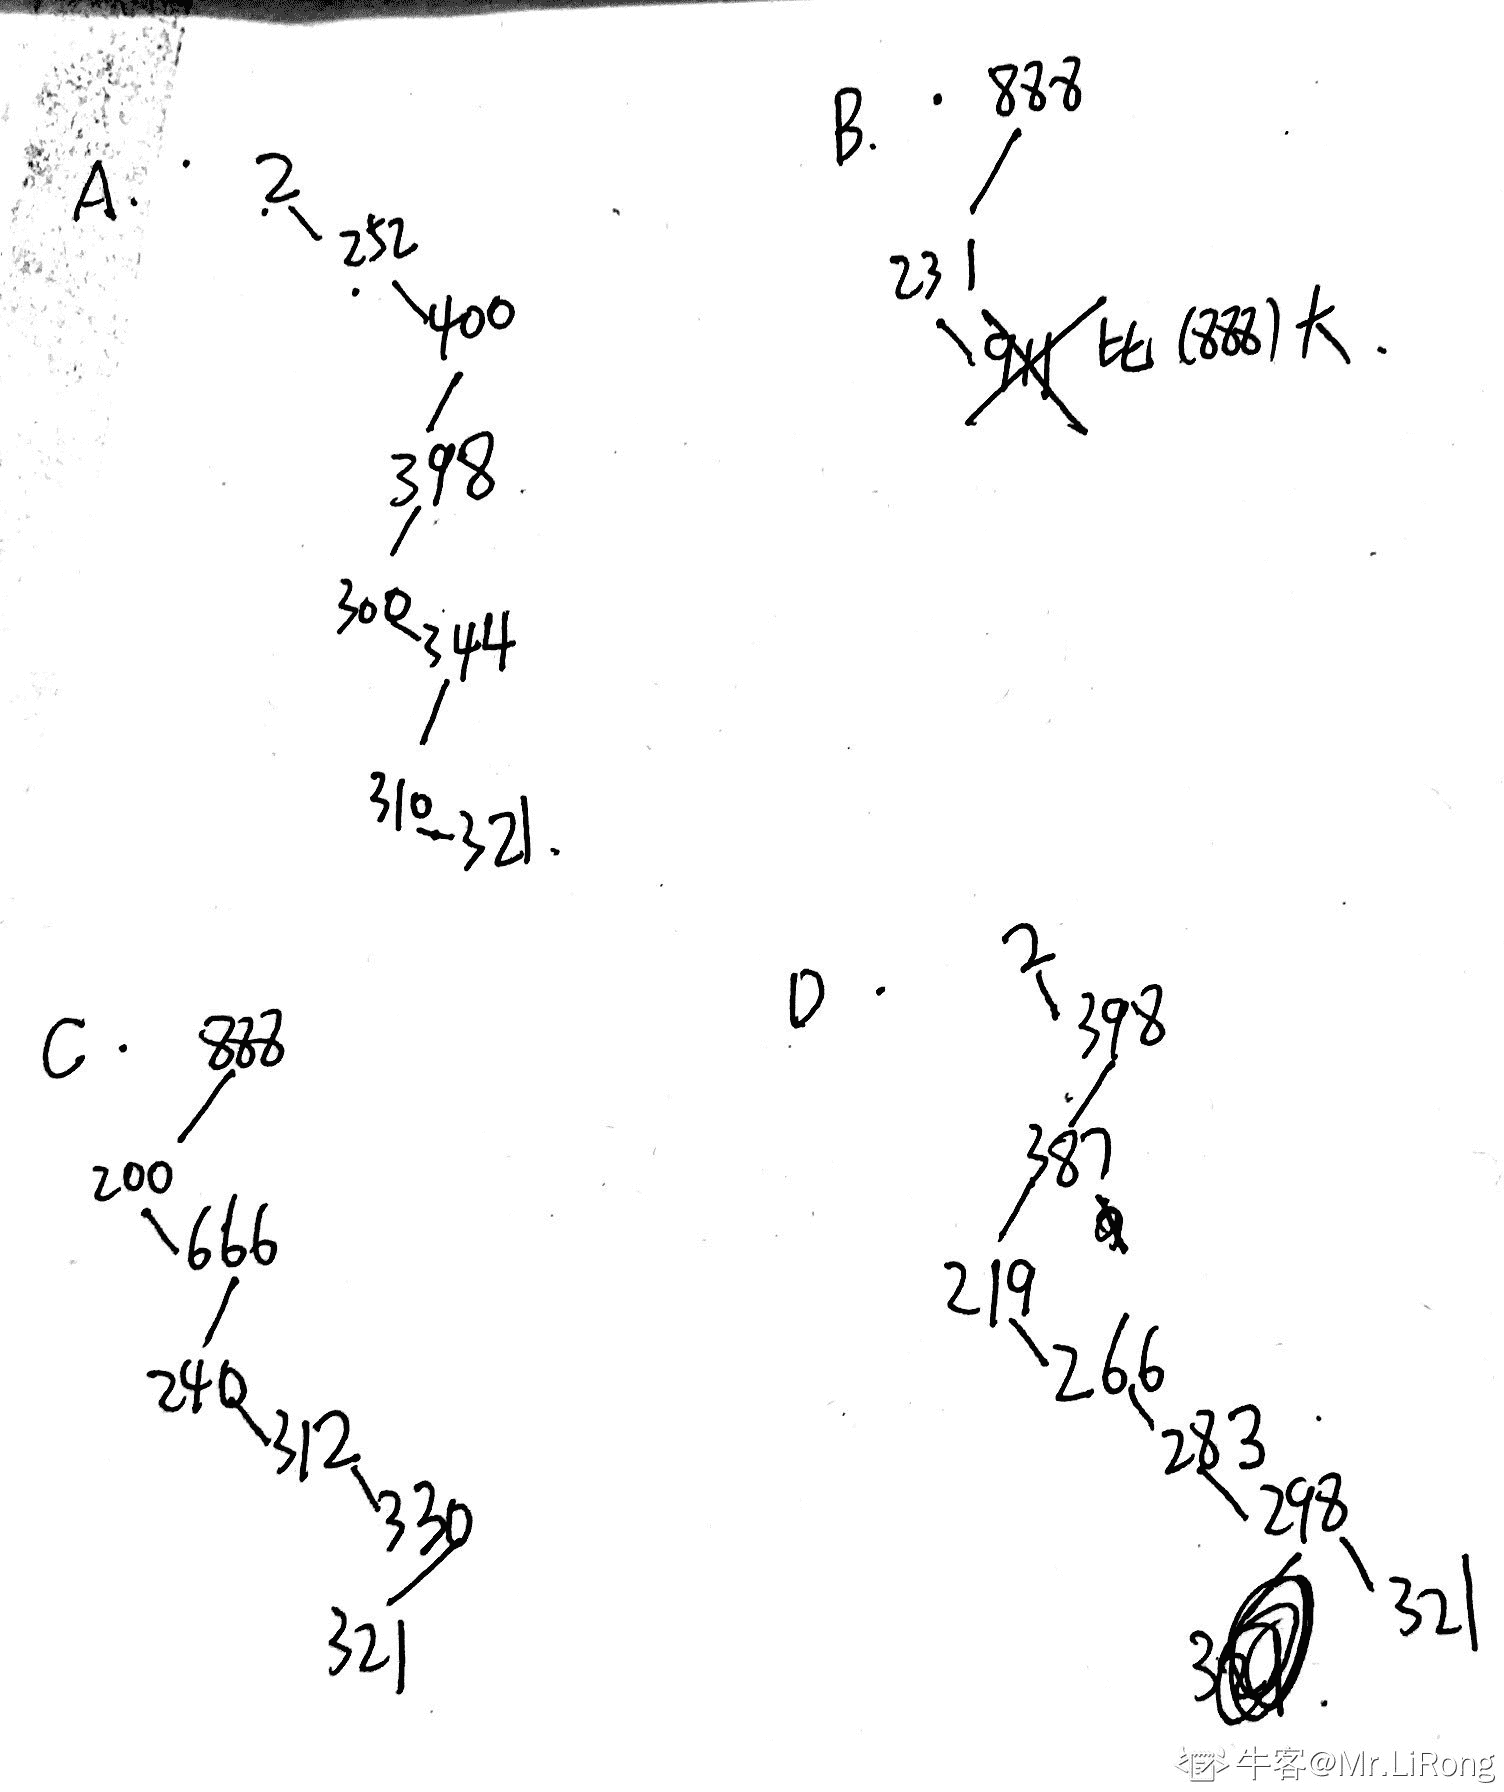 A.
2
252
400
398
300
344
310
321.
B.
888
231
911
比(888)大.
C.
888
200
666
240
312
330
321
D
2
398
387
219
266
283
298
321
牛客@Mr.LiRong